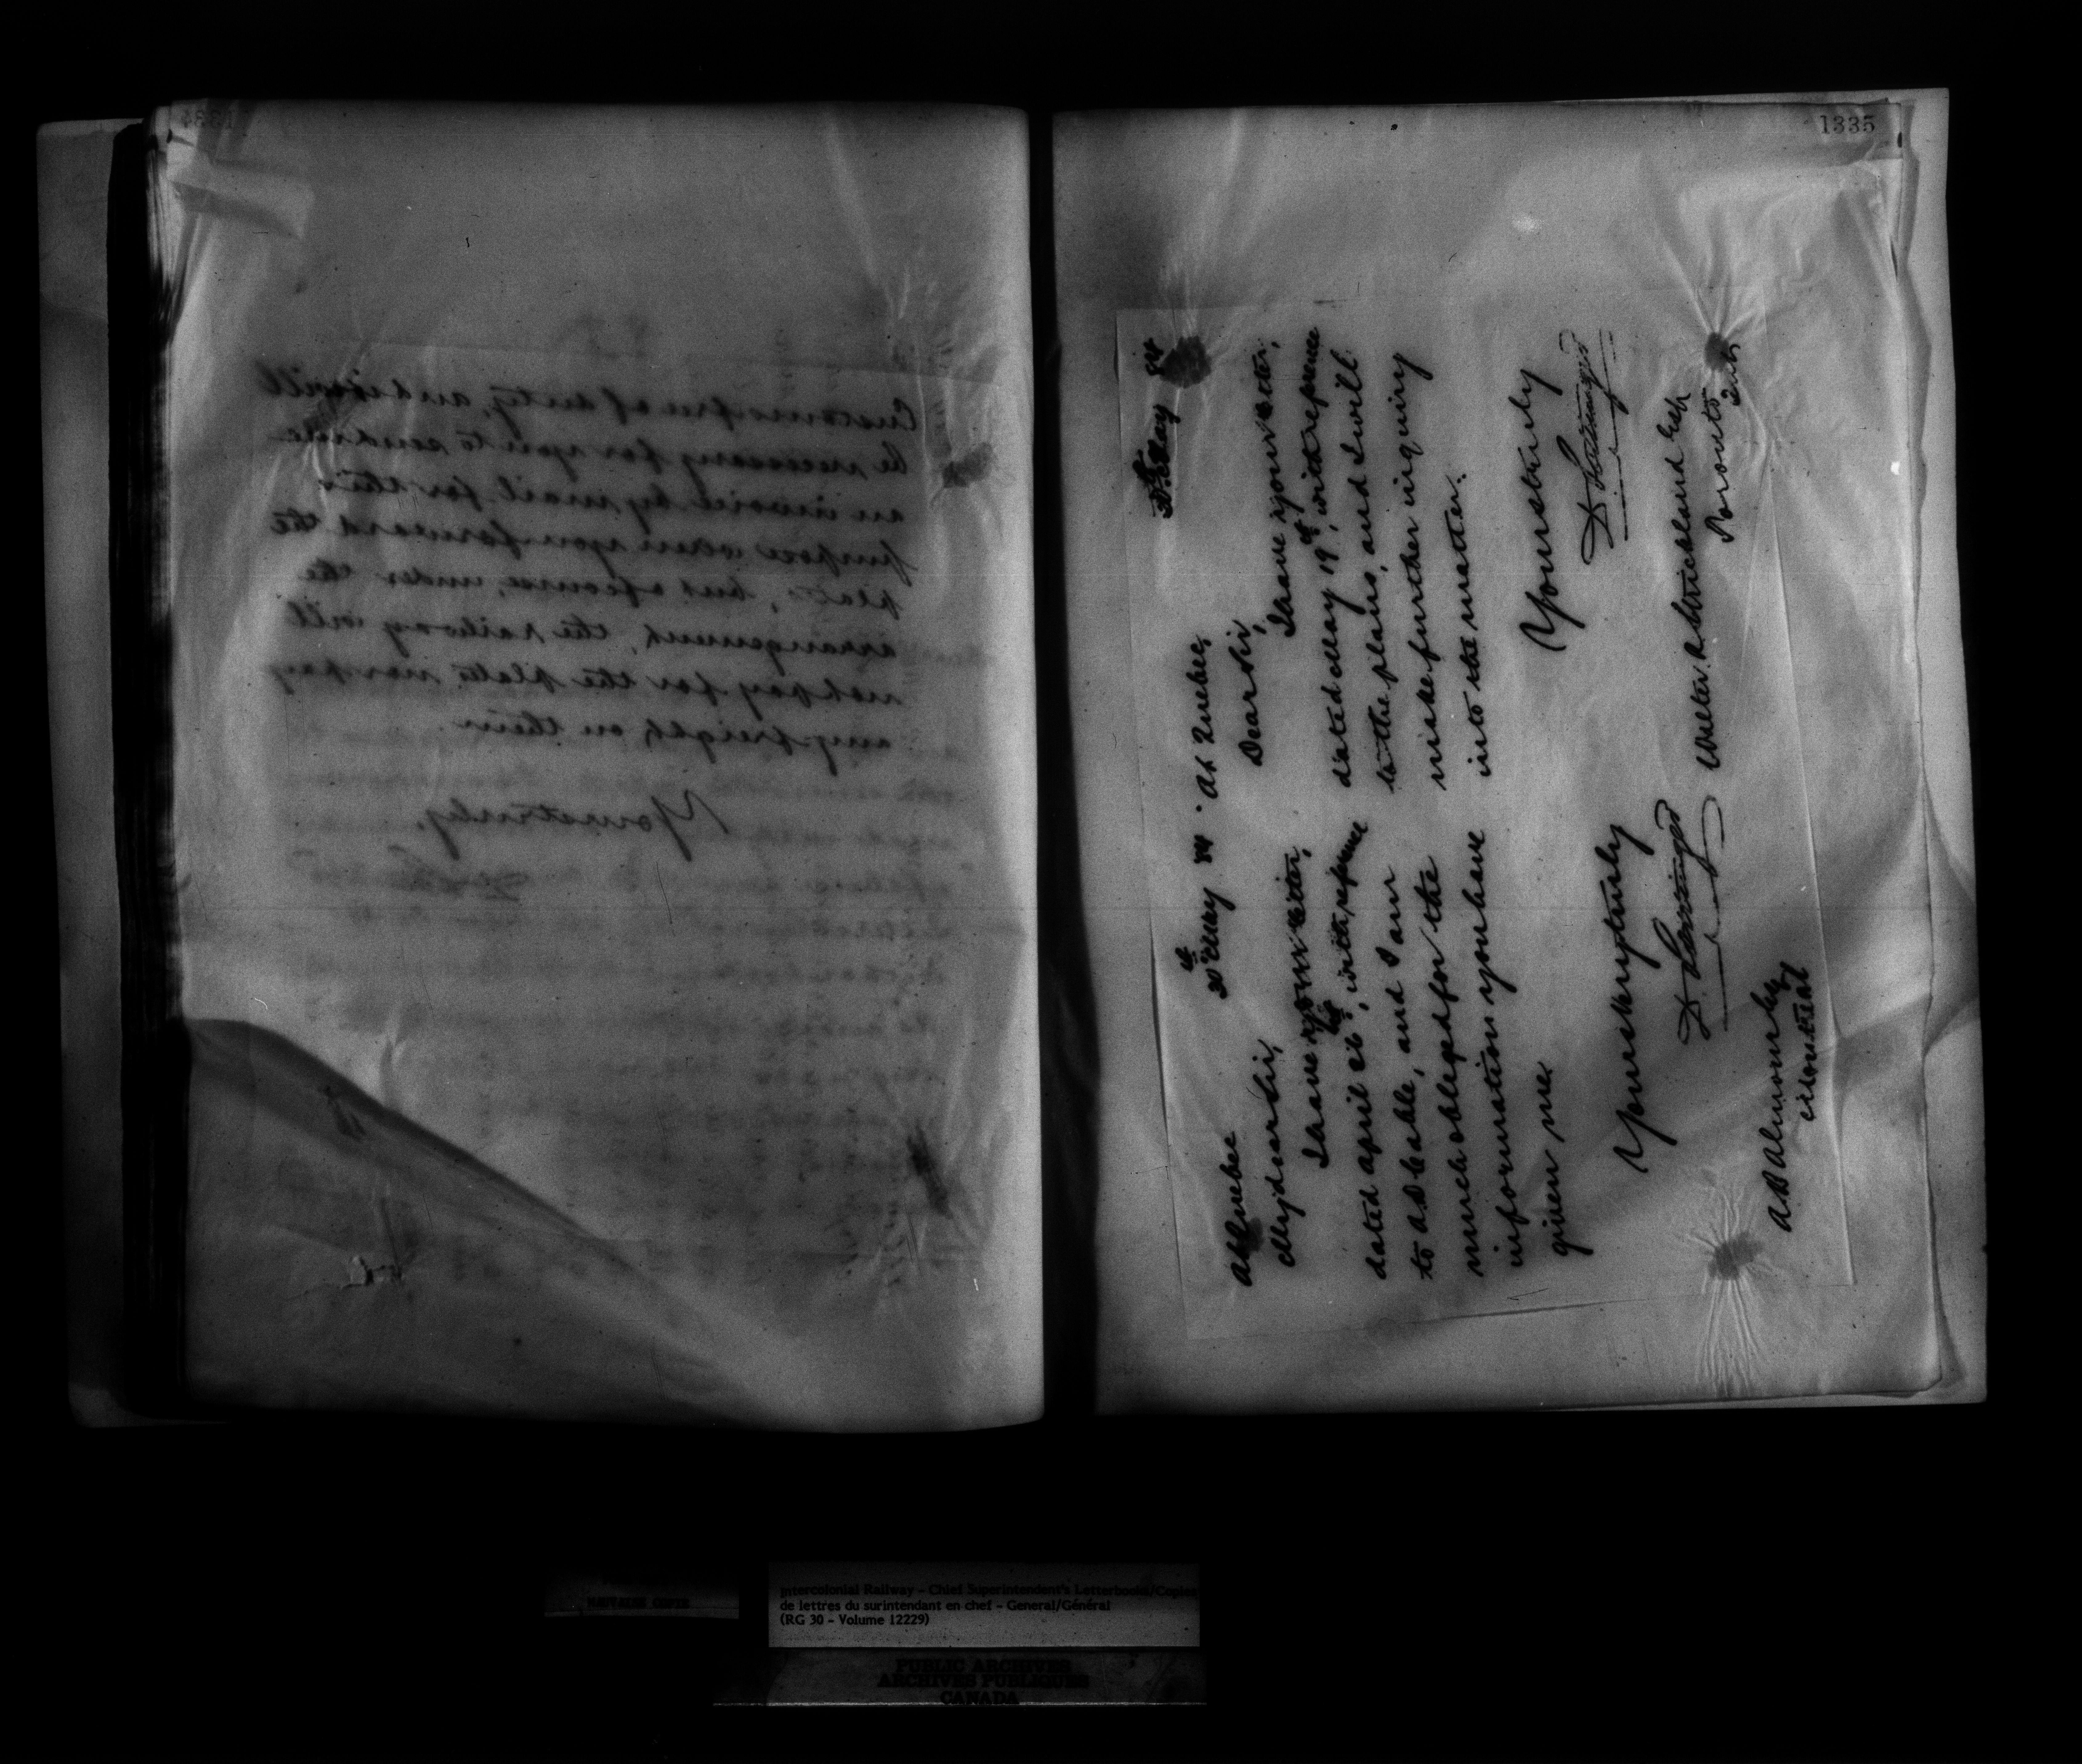 1334
Customs free of duty, and it will
be necessary for you to send me
an invoice by mail for this
purpose when you forward the
plate, but of course, under the
arrangement, the railway will
not pay for the plate nor pay
any freight on them.
Yours truly,
1335
At Quebec
20th May 84
My dear Sir,
I have your letter,
dated April 26th, with reference
to A. B. Cable, and I am
much obliged for the
information you have
given me.
Yours very truly
D Pottinger
Montreal
20th May 84
At Quebec,
Dear Sir,
I have your letter,
dated May 19th, with reference
to the plans, and I will
make further inquiry
into the matter.
Yours truly
D Pottinger
Walter R Strickland Esq
Toronto
Ont
Intercolonial Railway – Chief Superintendent's Letterbooks/Copies
de lettres du surintendant en chef – General/Général
(RG 30 – Volume 12229)
PUBLIC ARCHIVES
ARCHIVES PUBLIQUES
CANADA